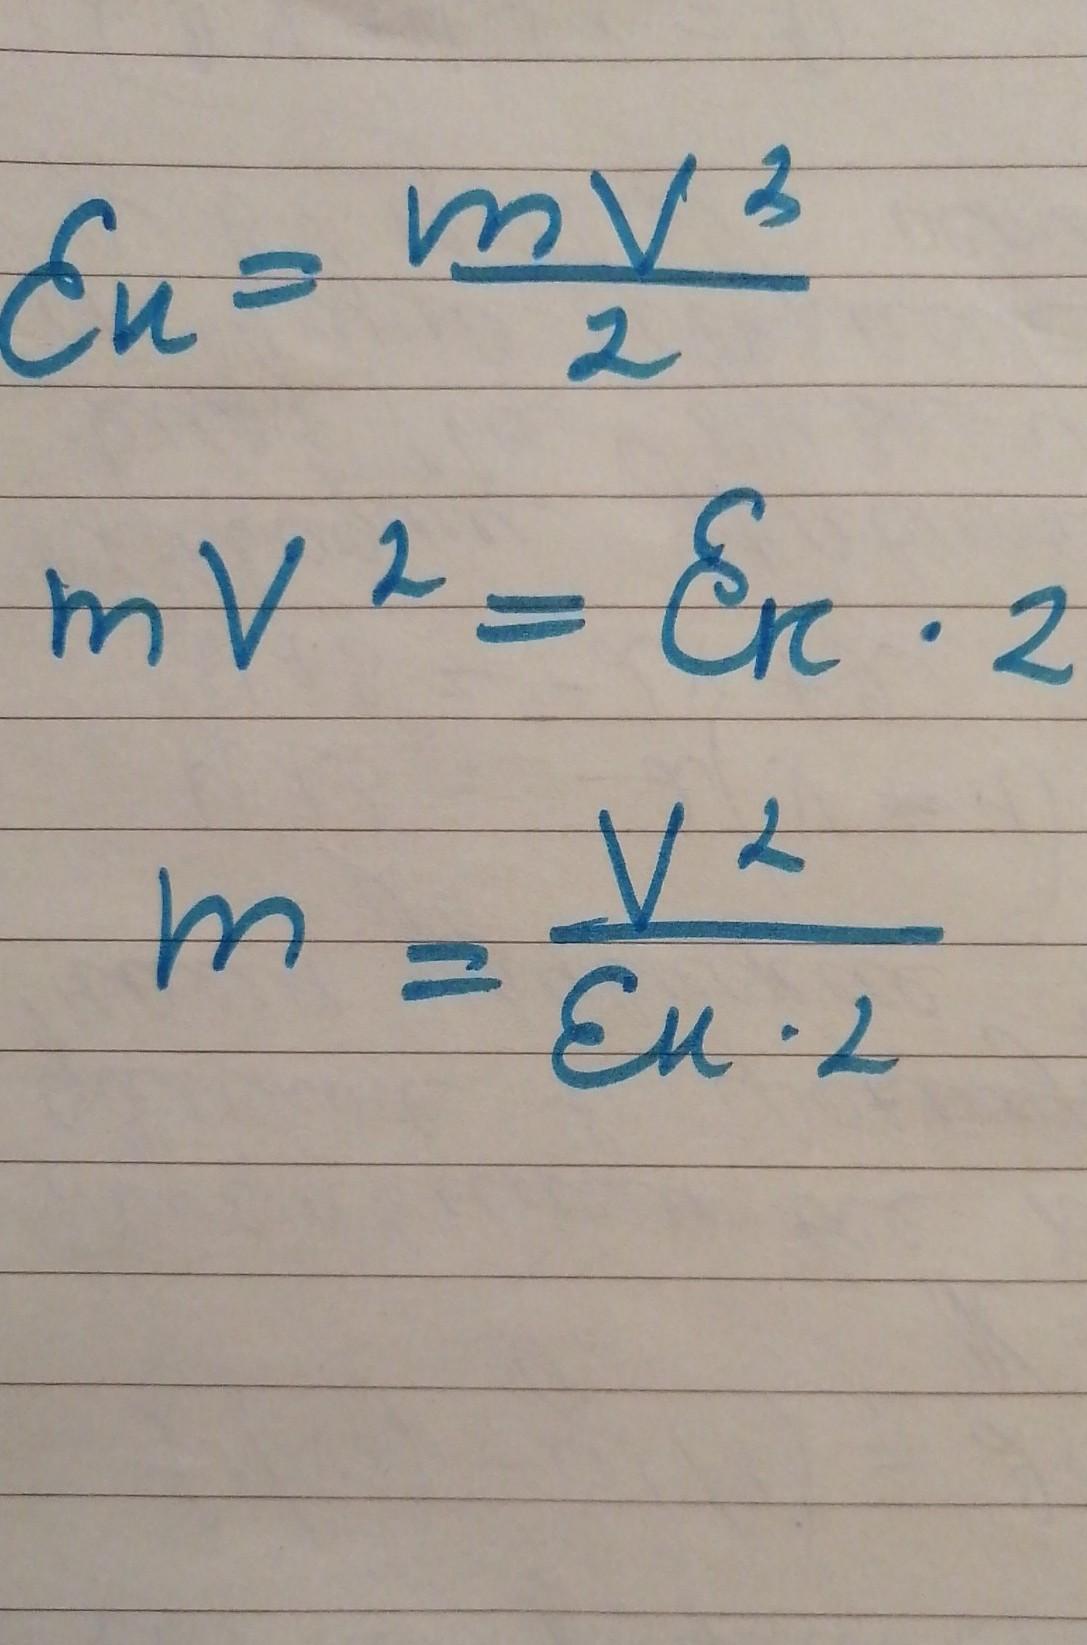 Eк = mV²/2
mV² = Eк · 2
m = V²/Eк · 2